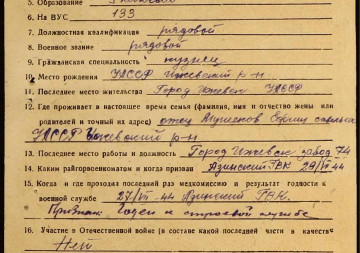 5. Образование
6. На ВУС 133
7. Должностная квалификация рядовой
8. Военное звание рядовой
9. Гражданская специальность кузнец
10. Место рождения УАССР Ижевский р-н
11. Последнее место жительства Город Ижевск УАССР
12. Где проживает в настоящее время семья (фамилия, имя и отчество жены или
родителей и точный их адрес) отец
УАССР Ижевский р-н
13. Последнее место работы и должность Город Ижевск завод 74
14. Каким райгорвоенкоматом и когда призван Азинский РВК 29/VI 44
15. Когда и где проходил последний раз медкомиссию и результат годности к
военной службе 27/VI-44 Азинский РВК.
Признан: Годен к строевой службе
16. Участие в Отечественной войне (в составе какой последней части и в качестве
Нет